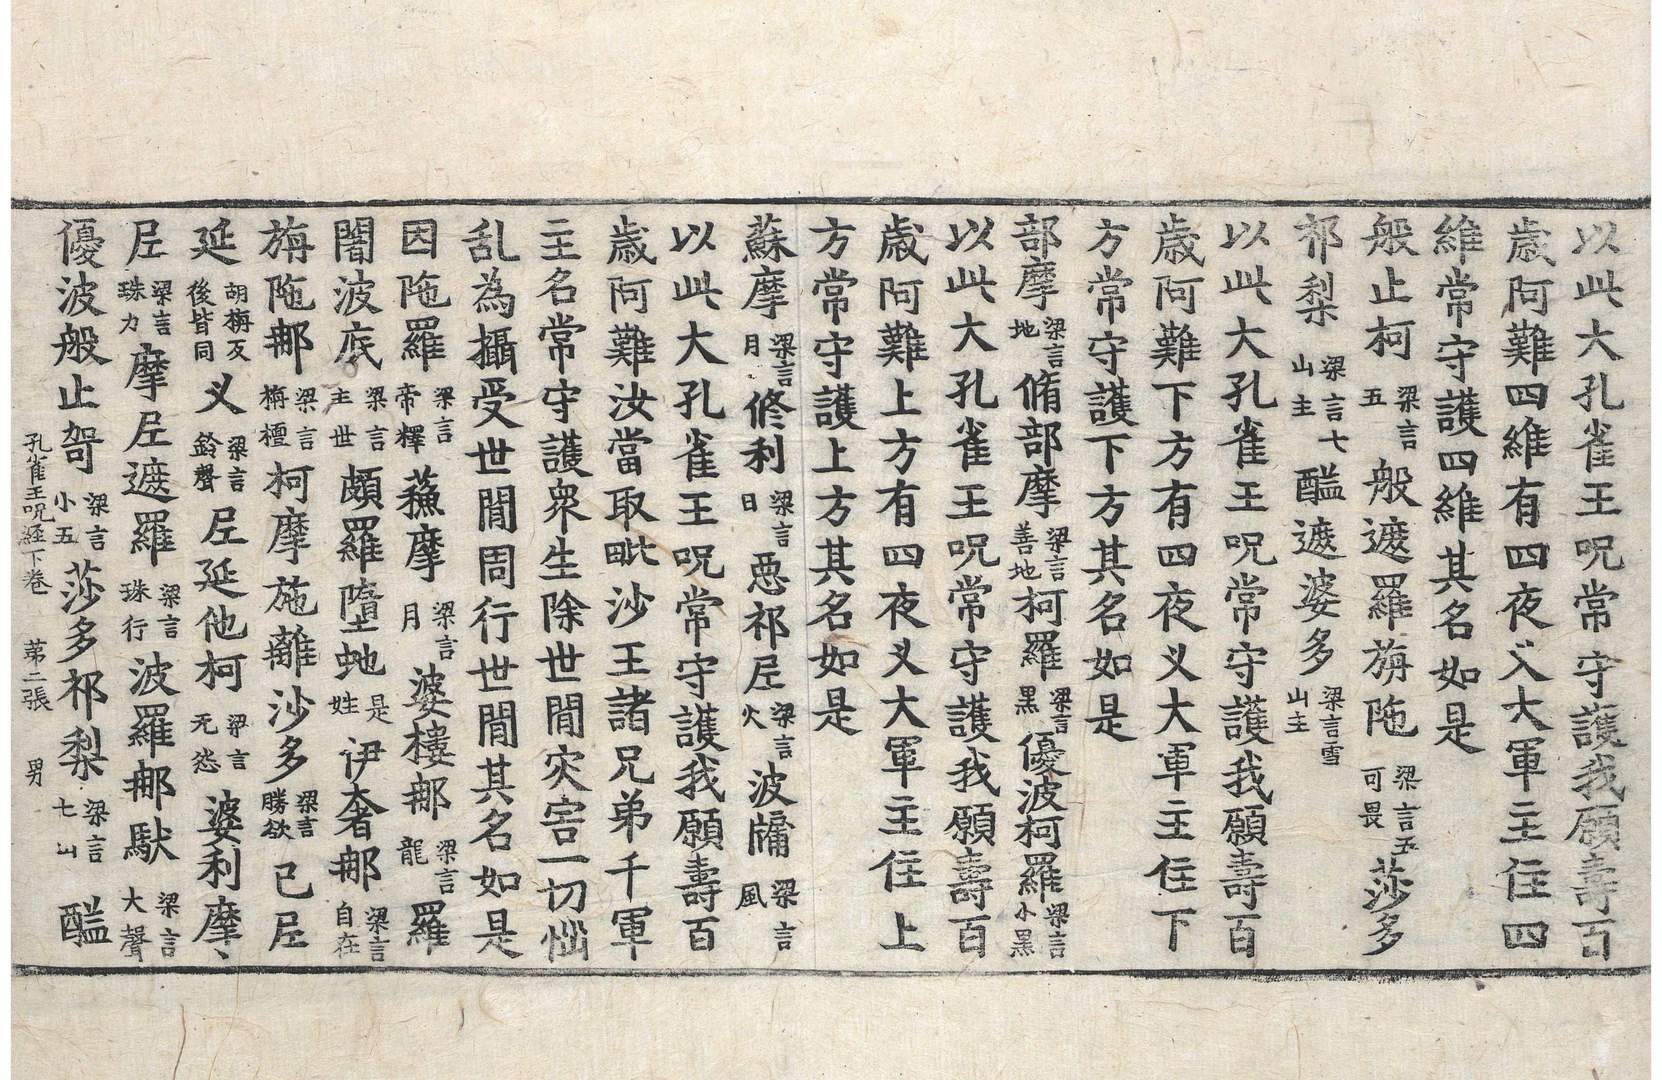 以此大孔雀王呪常守護我願壽百
歲阿難四維有四夜义大軍主住四
維常守護四維其名如是
般止柯梁言五般遮羅旃陁梁言五可畏莎多
祁梨梁言七山主醯遮婆多梁言雪山主
以此大孔雀王呪常守護我願壽百
歲阿難下方有四夜义大軍主住下
方常守護下方其名如是
部摩梁言地脩部摩梁言善地柯羅梁言黑優波柯羅梁言小黑
以此大孔雀王呪常守護我願壽百
歲阿難上方有四夜义大軍主住上
方常守護上方其名如是
蘇摩梁言月修利梁言日惡祁尼梁言火波牗梁言風
以此大孔雀王呪常守護我願壽百
歲阿難汝當取毗沙王諸兄弟千軍
主名常守護衆生除世間灾害一切惱
乱為攝受世間周行世間其名如是
因陁羅梁言帝釋蘓摩梁言月婆樓那梁言龍羅
闍波底梁言世主頗羅墮虵是姓伊奢那梁言自在
旃陁那梁言栴檀柯摩施離沙多梁言勝欲已尼
延胡栴反後皆同义梁言鈴聲尼延他柯梁言无慾婆利摩丶
尼梁言珠力摩尼遮羅梁言珠行波羅那馱梁言大聲
優波般止哿梁言小五莎多祁梨梁言七山醯
孔雀王呪経下卷 苐二張 男